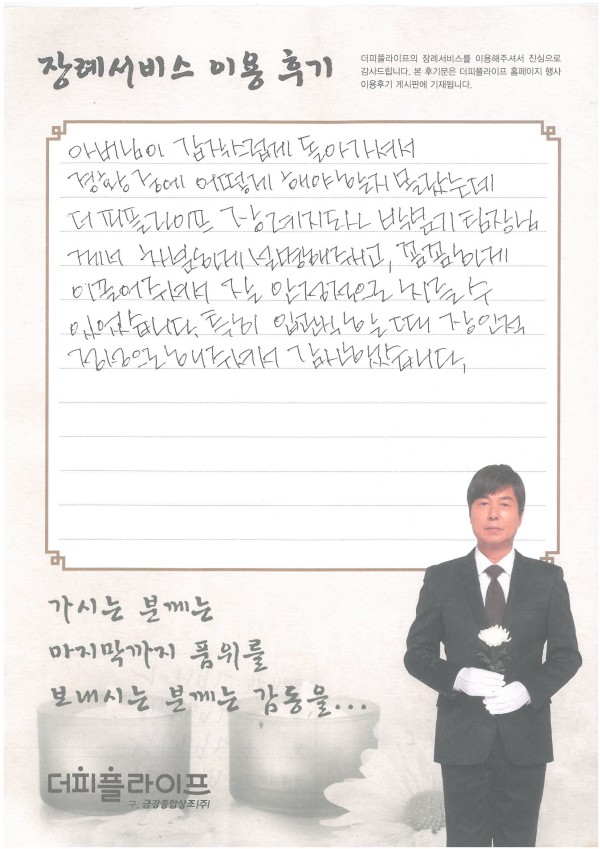 장례서비스 이용 후기
더피플라이프의 장례서비스를 이용해주셔서 진심으로
감사드립니다. 본 후기문은 더피플라이프 홈페이지 행사
이용후기 게시판에 기재됩니다.
아버님이 갑작스럽게 돌아가셔서
경황 중에 어떻게 해야할지 몰랐는데
더피플라이프 장례지도사 팀장님
께서 차분하게 설명해주시고, 꼼꼼하게
이끌어주셔서 잘 안정적으로 치를 수
있었습니다. 특히 입관식 하는 때에 장인적
정성으로 해주셔서 감사했습니다.
가시는 분께는
마지막까지 품위를
보내시는 분께는 감동을...
더피플라이프
구. 금강종합상조(주)